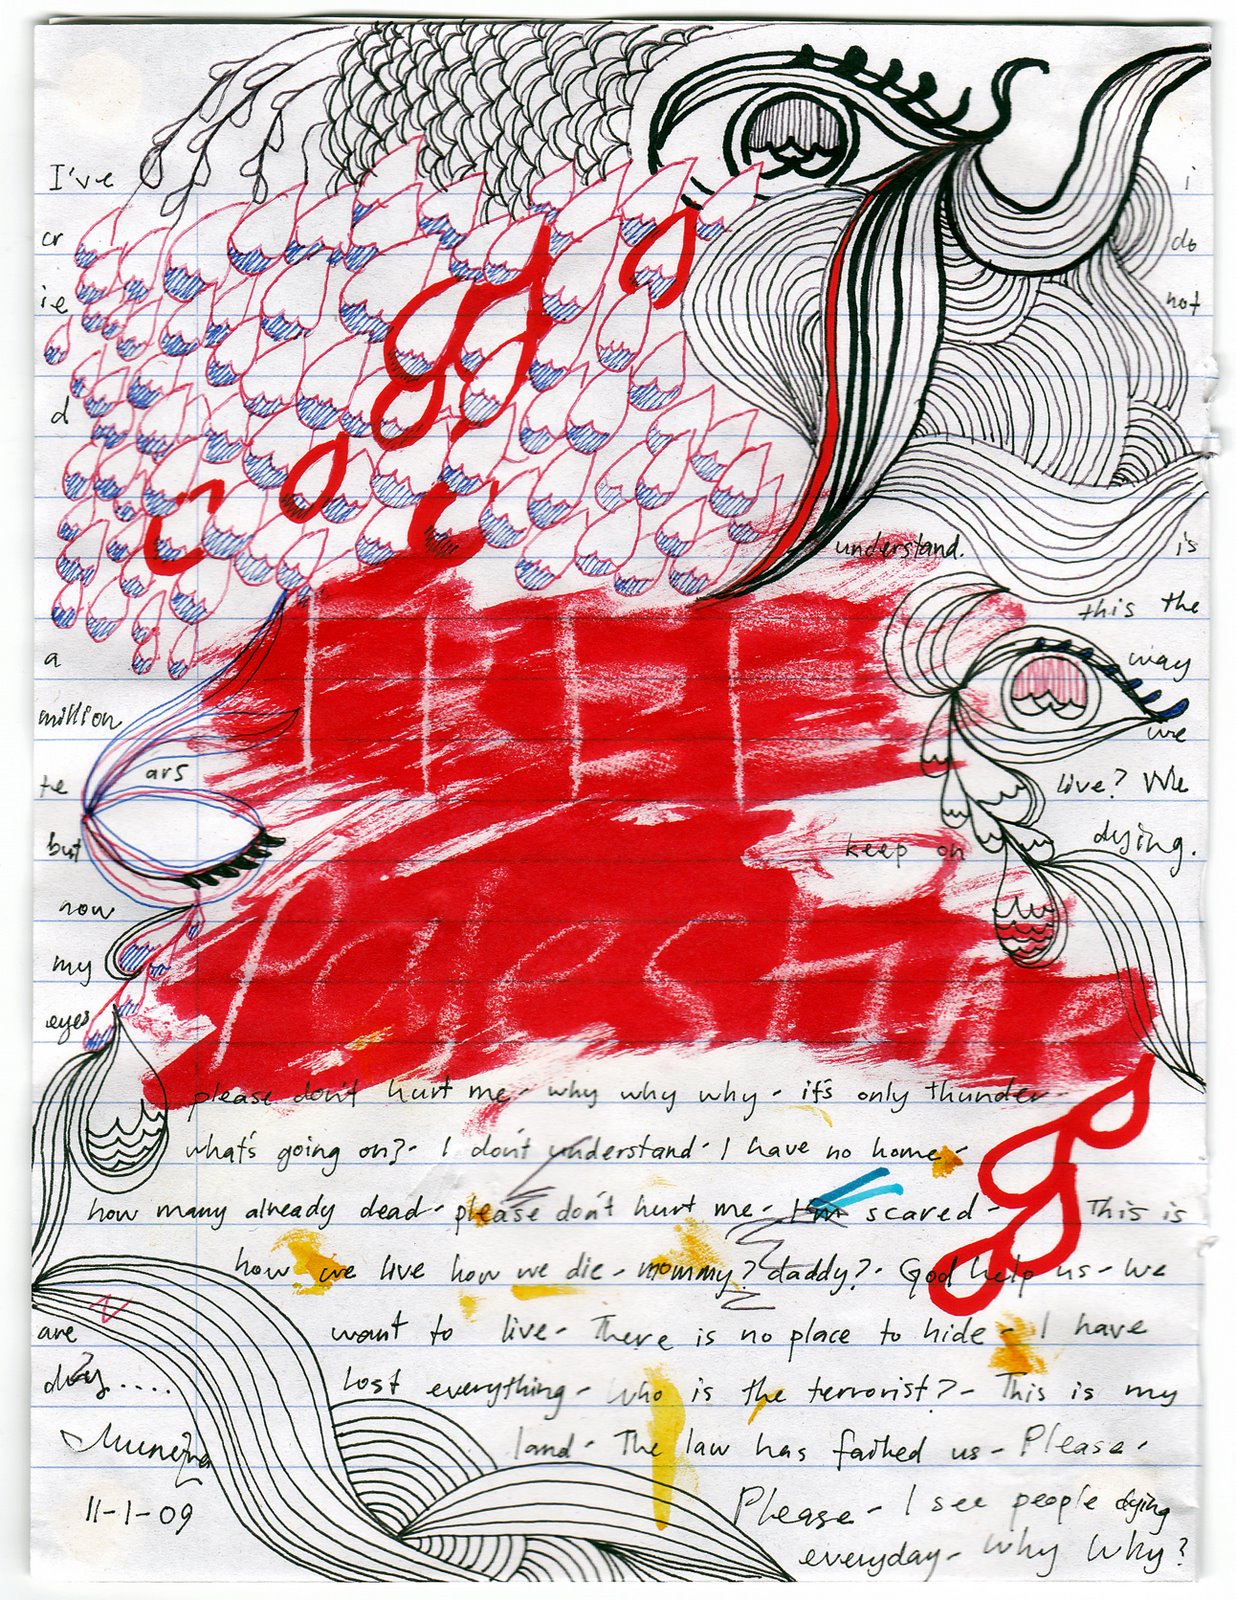 I've
cr
ie
d
a
million
te ars
but
now
my
eyes
are
dry.....
11-1-09
i
do
not
understand.
is
this the
way
we
live? We
keep on dying.
FREE
Palestine
please don't hurt me - why why why - it's only thunder -
what's going on? - I don't understand - I have no home -
how many already dead - please don't hurt me - I'm scared - This is
how we live how we die - mommy? daddy? - God help us - we
want to live - There is no place to hide - I have
lost everything - Who is the terrorist? - This is my
land - The law has failed us - Please -
Please - I see people dying
everyday - why why?